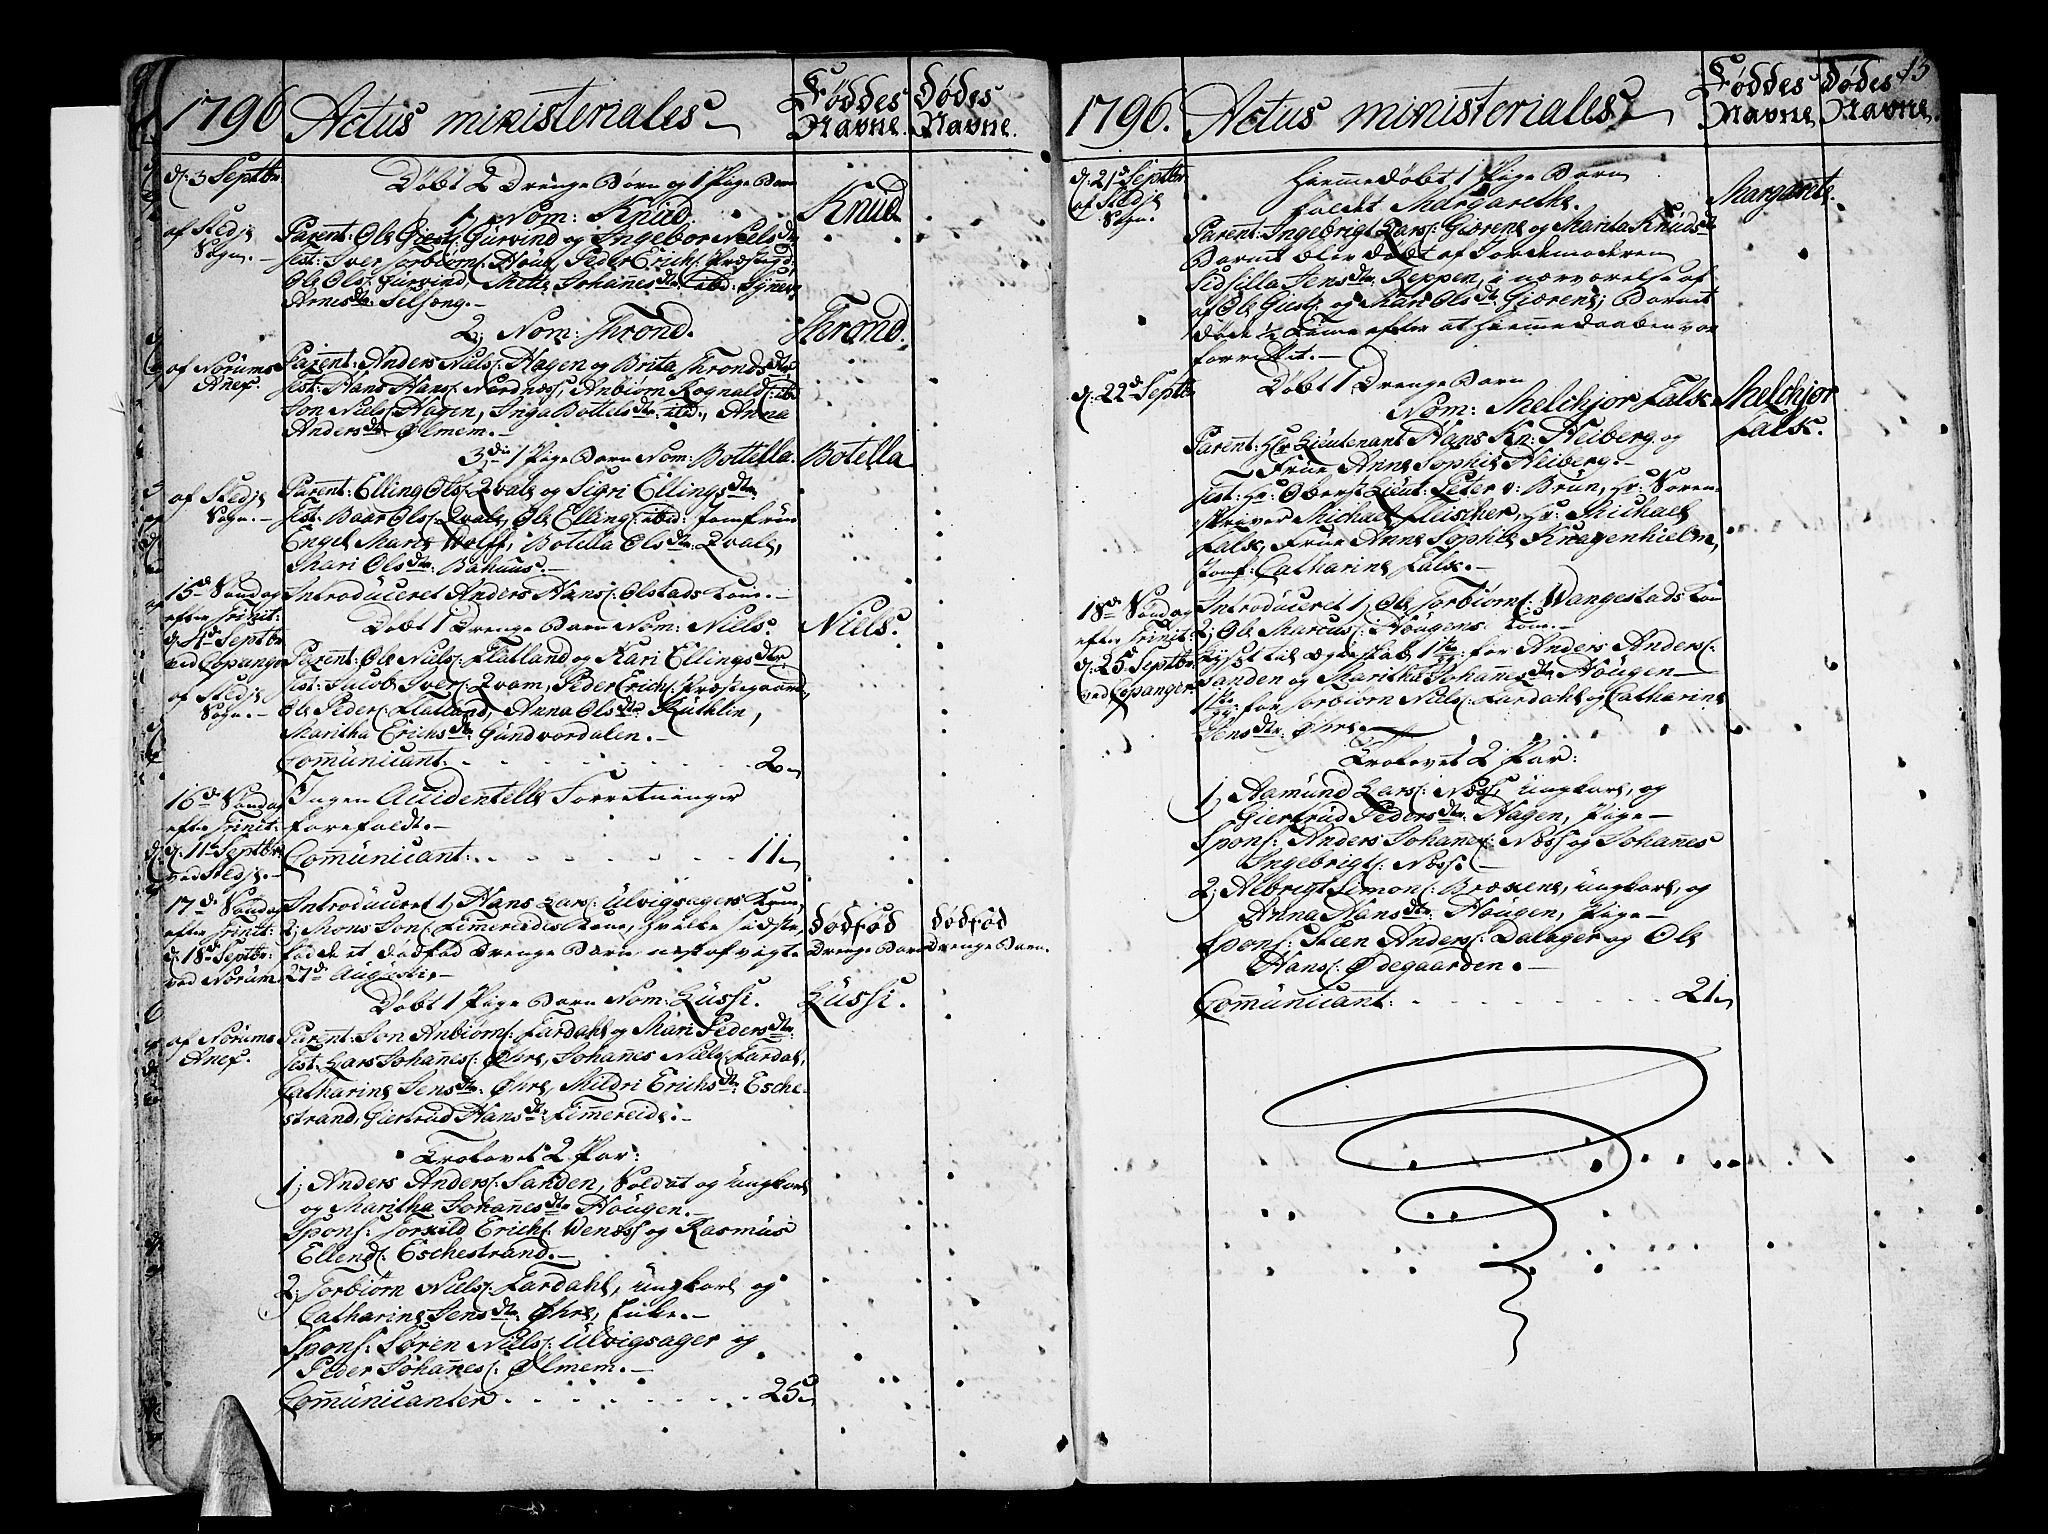 1796
Actus ministeriales
Føddes Navne.
Dødes Navne.
d: 3 Septbr:
af Stedje Sogn.
Døbt 2 Drenge Børn og 1 Pige Barn
1, Nom: Knud.
Knud
Parent: Ole Giests: Gurvind og Ingebor Niels dtr
Test: Iver Torbiørns: Houg, Peder Erichs: Præstegd:
Ole Ols: Gurvind, Mette Johanes dtr ibd: Synneve
Arnes dtr: Selseng.
2, Nom: Thrond.
Thrond.
af Nørums Anex.
Parent: Anders Niels: Hagen og Brita Thronds dtr
Test: Hans Hans: Nordnæss, Anbiørn Rognald: ibd
Son Niels: Hagen, Inga Bottels dtr: ibd:, Anna
Anders dtr: Ølmem.
3die 1 Pige Barn Nom: Bottella.
Botella
af Stedje Sogn.
Parent: Elling Ols: Qvale og Sigri Ellings dtr:
Test: Baar Ols: Qvale, Ole Elling: ibid: Jomfrue
Engel Marie Wolff, Botella Ols dtr: Qvale,
Mari Ols dtr: Bahuus.
15de Søndag
efter Trinit:
d 4de Septbr
ved Copanger
af Stedje Sogn.
Introduceret Anders Hans: Olstads Kone.
Døbt 1 Drenge Barn Nom: Niels.
Niels.
Parent: Ole Niels: Flatland og Kari Ellings dtr
Test: Jacob Iver: Qvam, Peder Erich: Præstegaard,
Ole Peder: Flatland, Anna Ols dtr: Kuthlin,
Maritha Erichs dtr: Gundvordalen.
Comunicant: 2
16de Søndag
efter Trinit:
d: 11te Septbr
ved Stedje.
Ingen Accidentelle Forretninger
forefaldt.
Comunicant: 11
17de Søndag
efter Trinit:
d: 18de Septbr:
ved Nørum.
Introduceret 1, Hans Lars: Ulvigsagers Kone,
2, Mons Son: Fimreidis Kone, hvilke sidste
fødde et dødfød Drenge Barn nest afvigte
27de Augusti.
dødfød Drenge Barn
dødfød Drenge Barn.
Døbt 1 Pige Barn Nom: Lussi.
Lussi.
af Nørums Anex.
Parent: Son Anbiørn: Fardahl og Mari Peders dtr:
Test: Lars Johanes: Øhre, Johannes Niels: Fardal,
Catharine Jens dtr: Øhre, Mildri Erichs dtr: Esche-
strand, Giertrud Hans dtr: Fimreide.
Trolovet 2 Par:
1, Anders Anders: Sanden, Soldat og Ungkarl
og Maritha Johannes dtr Hougen.
Spons: Torkild Erich: Venæss og Rasmus
Ellend: Eschestrand.
2, Torbiørn Niels: Fardahl, Ungkarl og
Catharine Jens dtr: Øhre, Enke.
Spons: Søren Niels: Ulvigsager og
Peder Johannes: Ølmem.
Comunicanter 25
1796.
Actus ministeriales
Føddes Navne
Dødes Navne.
15
d: 21de Septbr
af Stedje Sogn.
Hiemmedøbt 1 Pige Barn
kaldet Margarethe.
Margarete.
Parent: Ingebrigt Lars: Giørene og Marita Knuds dtr
Barnet blev døbt af Jordemoderen
Sidsilla Jens dtr: Reppen, i nærværelse af
af Ole Giests: og Mari Ols dtr: Giørene; Barnet
døde 1/2 Time efter at Hiemmedaaben var
forrettet.
d: 22de Septbr
Døbt 1 Drenge Barn
Nom: Melchjor Falk
Melchjor Falk.
Parent: Hr Lieutenant Hans Kn: Heiberg og
Frue Anne Sophie Heiberg.
Test: Hr: Oberst Lieut: Peter v: Brun, Hr: Soren-
skriver Michael Fleischer, Hr: Michael
Falk, Frue Anne Sophie Knagenhielm,
Jomf: Catharine Falk.
18de Søndag
efter Trinit:
d: 25de Septbr
ved Copanger
Introduceret 1, Ole Torbiørn: Wangestads Kone
2, Ole Marcus: Hougens Kone.
Lyst til Ægteskab 1ste g: for Anders Anders:
Sanden og Maritha Johannes dtr Hougen
1ste g: for Torbiørn Niels: Fardahl og Catharine
Jens dtr: Øhre.
Trolovet 2 Par:
1, Aamund Lars: Næss, Ungkarl, og
Giertrud Peders dtr: Hagen, Pige
Spons: Anders Johanes: Næss og Johanes
Ingebrigts: Næss.
2, Aebrigt Simons: Bræxene, Ungkarl, og
Anna Hans dtr: Hougen, Pige
Spons: Steen Anders: Dalager og Ole
Hans: Ødegaarden.
Comunicant: 21